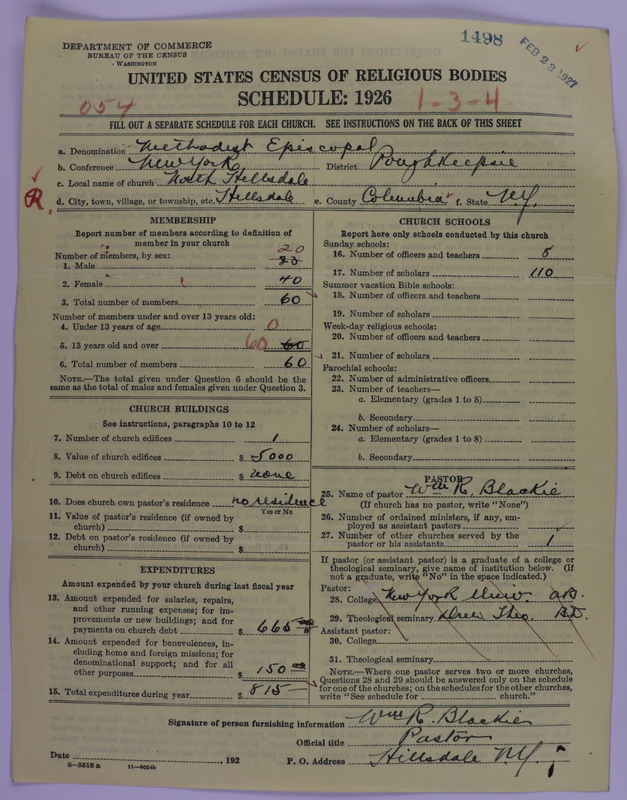 1498 FEB 28 1927
DEPARTMENT OF COMMERCE
BUREAU OF THE CENSUS
WASHINGTON
UNITED STATES CENSUS OF RELIGIOUS BODIES
SCHEDULE: 1926
054 1-3-4
FILL OUT A SEPARATE SCHEDULE FOR EACH CHURCH. SEE INSTRUCTIONS ON THE BACK OF THIS SHEET
a. Denomination Methodist Episcopal
b. Conference New York District Poughkeepsie
c. Local name of church North Hillsdale
R. d. City, town, village, or township, etc. Hillsdale e. County Columbia f. State N.Y.
MEMBERSHIP
Report number of members according to definition of
member in your church
Number of members, by sex: 20
1. Male
2. Female 40
3. Total number of members 60
Number of members under and over 13 years old:
4. Under 13 years of age 0
5. 13 years old and over 60 60
6. Total number of members 60
NOTE.—The total given under Question 6 should be the
same as the total of males and females given under Question 3.
CHURCH BUILDINGS
See instructions, paragraphs 10 to 12
7. Number of church edifices 1
8. Value of church edifices $ 5000
9. Debt on church edifices $ none
10. Does church own pastor's residence no residence
Yes or No
11. Value of pastor's residence (if owned by
church) $
12. Debt on pastor's residence (if owned by
church) $
EXPENDITURES
Amount expended by your church during last fiscal year
13. Amount expended for salaries, repairs,
and other running expenses; for im-
provements or new buildings; and for
payments on church debt $ 665
14. Amount expended for benevolences, in-
cluding home and foreign missions; for
denominational support; and for all
other purposes $ 150 00
15. Total expenditures during year $ 815
CHURCH SCHOOLS
Report here only schools conducted by this church
Sunday schools:
16. Number of officers and teachers 8
17. Number of scholars 110
Summer vacation Bible schools:
18. Number of officers and teachers
19. Number of scholars
Week-day religious schools:
20. Number of officers and teachers
21. Number of scholars
Parochial schools:
22. Number of administrative officers
23. Number of teachers—
a. Elementary (grades 1 to 8)
b. Secondary
24. Number of scholars—
a. Elementary (grades 1 to 8)
b. Secondary
PASTOR
25. Name of pastor Wm R. Blackie
(If church has no pastor, write "None")
26. Number of ordained ministers, if any, em-
ployed as assistant pastors
27. Number of other churches served by the
pastor or his assistants 1
If pastor (or assistant pastor) is a graduate of a college or
theological seminary, give name of institution below. (If
not a graduate, write "No" in the space indicated.)
Pastor:
28. College New York Univ. A.B.
29. Theological seminary Drew Theo. B.D.
Assistant pastor:
30. College
31. Theological seminary
NOTE.—Where one pastor serves two or more churches,
Questions 28 and 29 should be answered only on the schedule
for one of the churches; on the schedules for the other churches,
write "See schedule for church."
Signature of person furnishing information Wm R. Blackie
Official title Pastor
Date , 192 P. O. Address Hillsdale N.Y.
8-5516 a 11-8024b